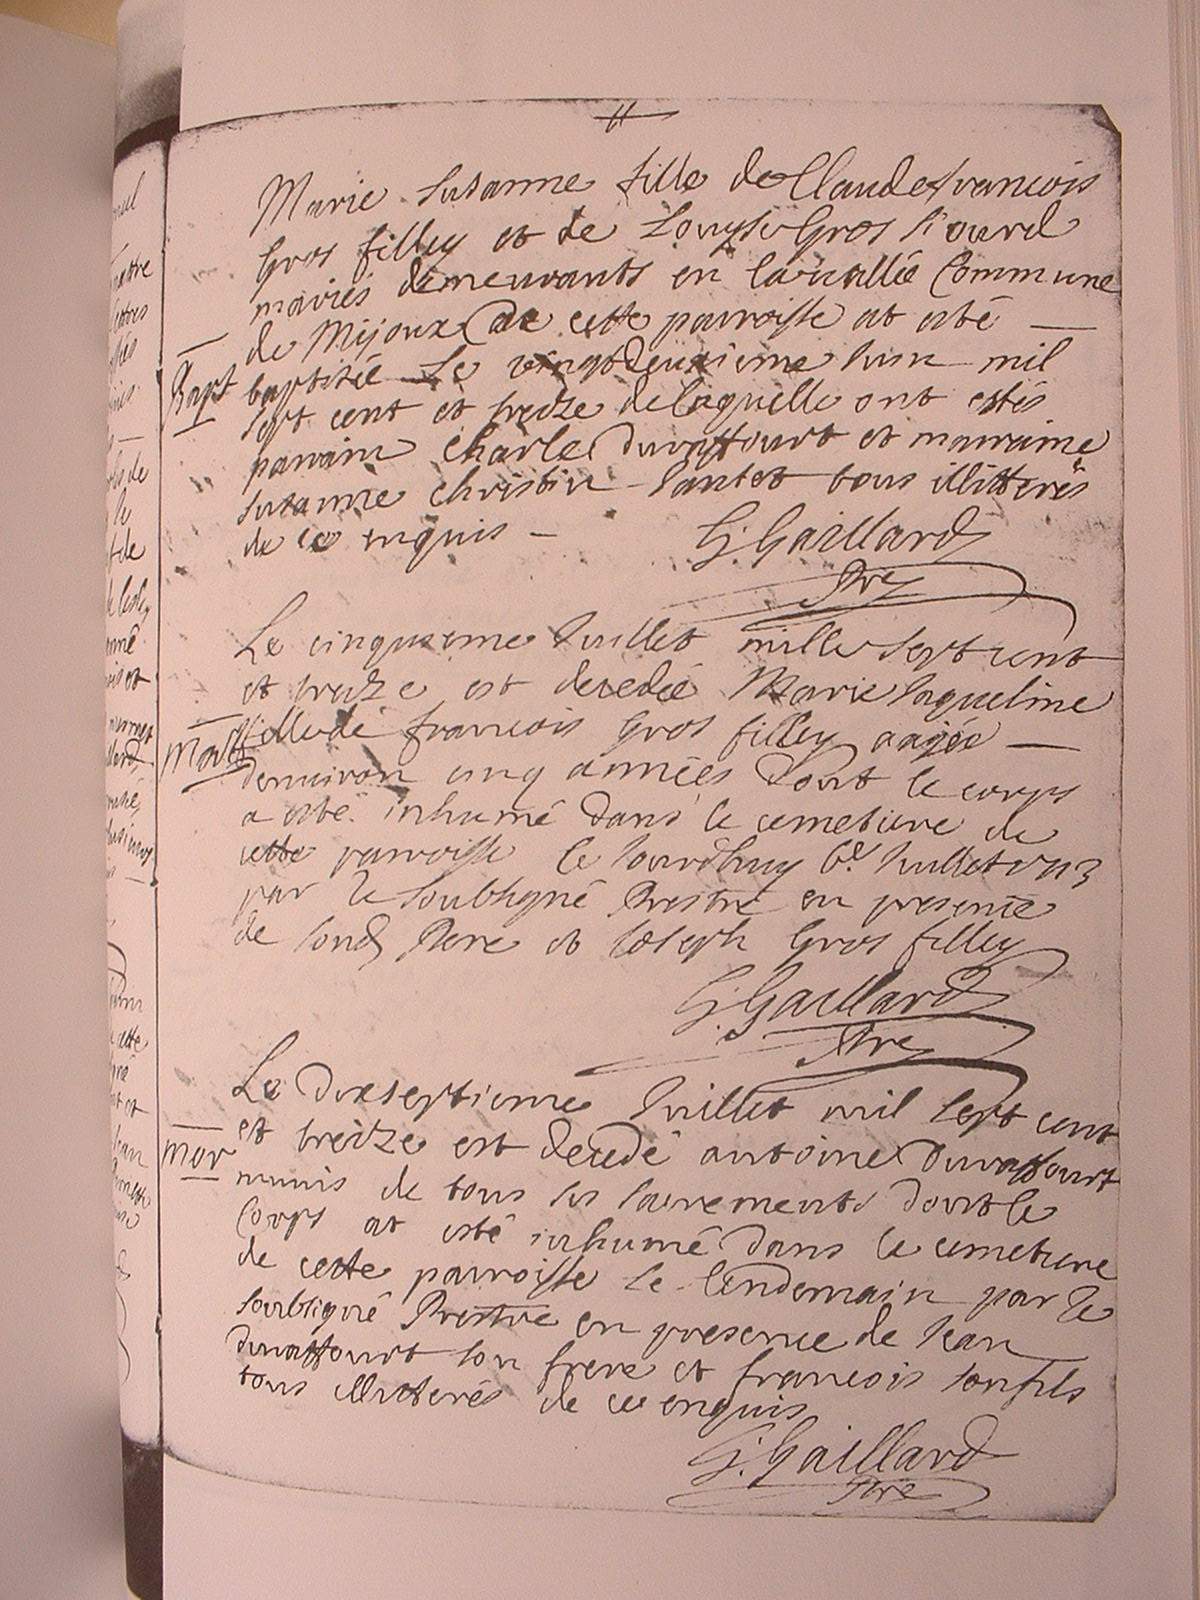 Marie Susanne fille de Claude francois
Gros filley et de Louyse Gros Piourd
mariés demeurants en la vallée Commune
de Mijoux de cette parroisse at esté
Bapt baptisée Le vingtdeuxieme Iuin mil
sept cent et treize de laquelle ont estés
parrain Charle Duraffourt et marraine
Susanne Christin tous illitterés
de ce enquis
G. Gaillard
Pbre
Le cinquieme Iuillet mille sept cent
et treize est decedée Marie Iaqueline
Mort fille de francois Gros filley aagée
denviron cinq années Dont le corps
a esté inhumé dans le cemetiere de
cette parroisse le Iourdhuy 6e Iuillet 1713
par le soubsigné Prestre en presence
de sond Pere et Ioseph Gros filley
G. Gaillard
Pbre
Le Dixseptieme Iuillet mil sept cent
et treize est decedé antoine Duraffourt
Mor munis de tous les sacrements dont le
Corps at esté inhumé dans le cemetiere
de cette parroisse le lendemain par le
soubsigné Prestre en presence de Iean
Duraffourt son frere et francois son fils
tous illitterés de ce enquis
G. Gaillard
Pbre